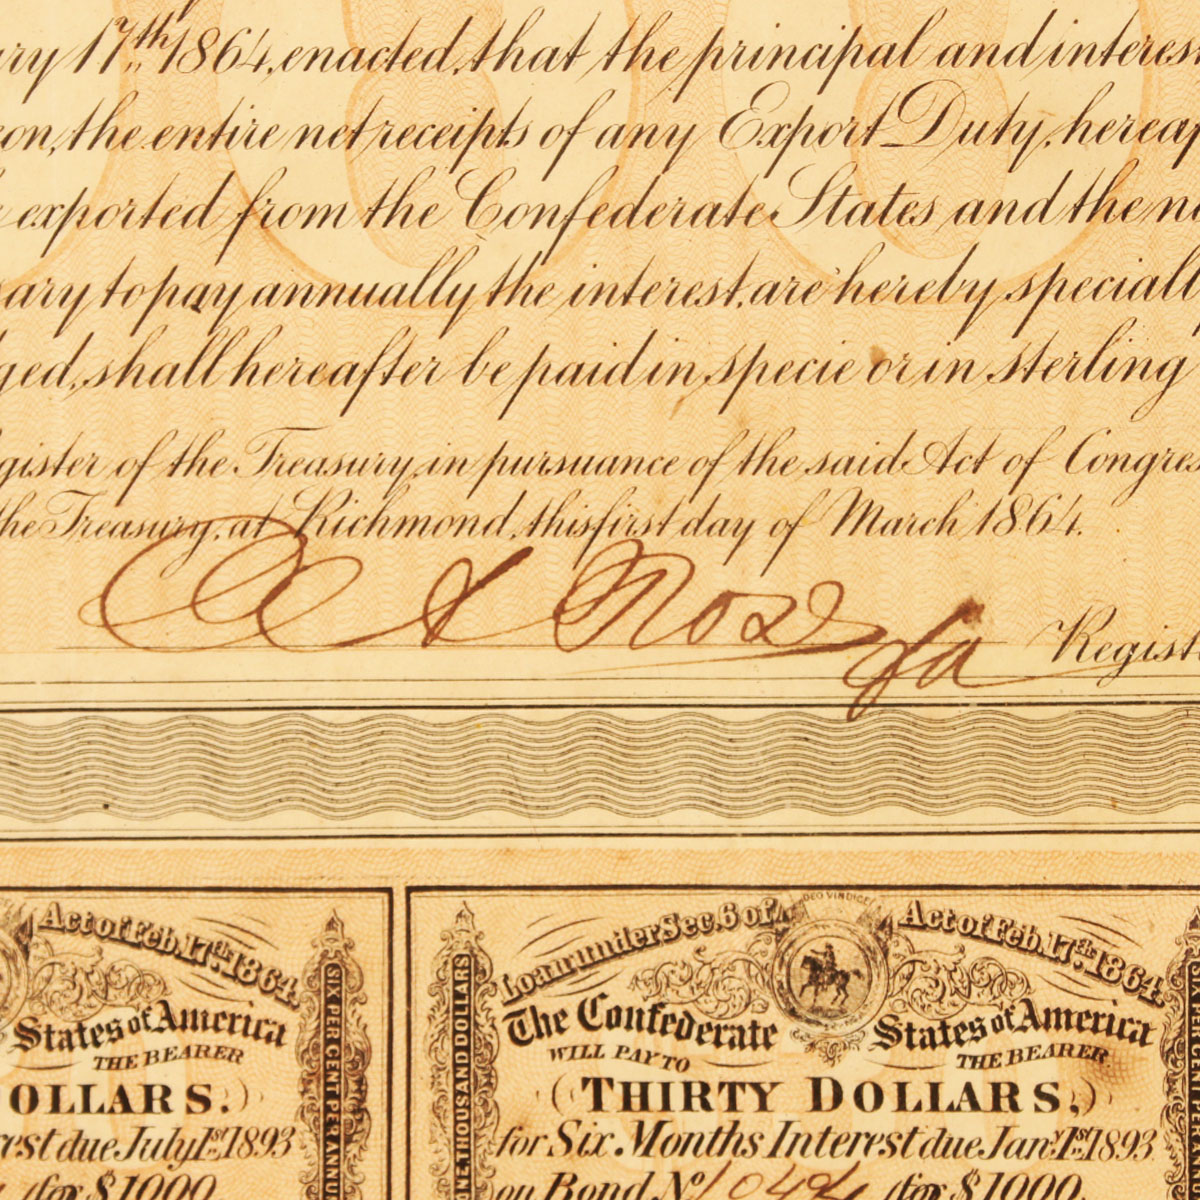 17th 1864, enacted, that the principal and interest
the entire net receipts of any Export Duty, hereaf
exported from the Confederate States and the n
ary to pay annually the interest, are hereby speciall
ged, shall hereafter be paid in specie or in sterling
gister of the Treasury, in pursuance of the said Act of Congres
the Treasury, at Richmond, this first day of March 1864.
Rose
Regist
Act of Feb. 17th 1864.
States of America
THE BEARER
OLLARS.
est due July 1st 1893
for $1000
SIX PER CENT PER ANNU
ONE THOUSAND DOLLARS
Loan under Sec. 6 of
DEO VINDICE
Act of Feb. 17th 1864.
The Confederate States of America
WILL PAY TO THE BEARER
(THIRTY DOLLARS,)
for Six Months Interest due Jany 1st 1893
on Bond No 10494 for $1000